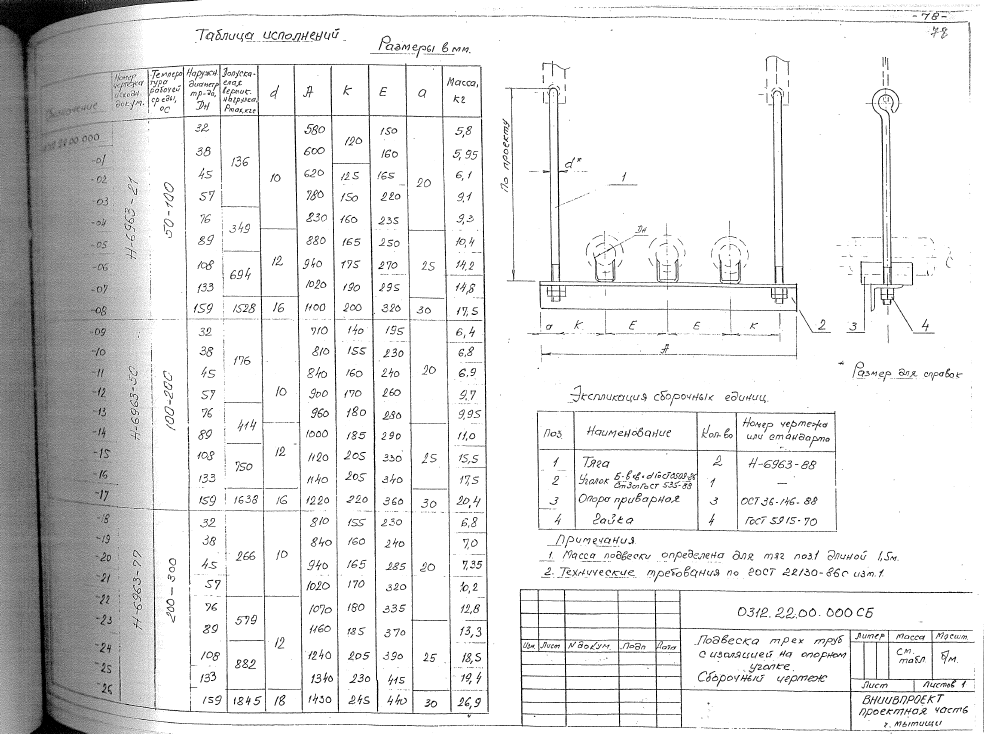 -78-
78
Таблица исполнений
Размеры в мм.
Обозначение | Номер чертежа исходн. докум. | Температура рабочей среды, °С | Наружн. диаметр тр-да, Dн | Допускаемая вертик. нагрузка, Pmax, кгс | d | A | K | E | a | Масса, кг
00.000 | Н-6963-21 | 50-100 | 32 | 136 | 10 | 580 | 120 | 150 | 20 | 5,8
-01 | 38 | 600 | 160 | 5,95
-02 | 45 | 620 | 125 | 165 | 6,1
-03 | 57 | 780 | 150 | 220 | 9,1
-04 | 76 | 349 | 830 | 160 | 235 | 9,3
-05 | 89 | 12 | 880 | 165 | 250 | 25 | 10,4
-06 | 108 | 694 | 940 | 175 | 270 | 14,2
-07 | 133 | 1020 | 190 | 295 | 14,8
-08 | 159 | 1528 | 16 | 1100 | 200 | 320 | 30 | 17,5
-09 | Н-6963-50 | 100-200 | 32 | 176 | 10 | 710 | 140 | 195 | 20 | 6,4
-10 | 38 | 810 | 155 | 230 | 6,8
-11 | 45 | 840 | 160 | 240 | 6,9
-12 | 57 | 900 | 170 | 260 | 9,7
-13 | 76 | 414 | 960 | 180 | 280 | 9,95
-14 | 89 | 12 | 1000 | 185 | 290 | 25 | 11,0
-15 | 108 | 750 | 1120 | 205 | 330 | 15,5
-16 | 133 | 1140 | 205 | 340 | 17,5
-17 | 159 | 1638 | 16 | 1220 | 220 | 360 | 30 | 20,4
-18 | Н-6963-77 | 200-300 | 32 | 266 | 10 | 810 | 155 | 230 | 20 | 6,8
-19 | 38 | 840 | 160 | 240 | 7,0
-20 | 45 | 940 | 165 | 285 | 7,35
-21 | 57 | 1020 | 170 | 320 | 10,2
-22 | 76 | 579 | 12 | 1070 | 180 | 335 | 12,8
-23 | 89 | 1160 | 185 | 370 | 25 | 13,3
-24 | 108 | 882 | 1240 | 205 | 390 | 18,5
-25 | 133 | 1340 | 230 | 415 | 19,4
26 | 159 | 1845 | 18 | 1430 | 245 | 440 | 30 | 26,9
По проекту
d*
1
Dн
a K E E K
A
2
3
4
* Размер для справок
Экспликация сборочных единиц
Поз. | Наименование | Кол-во | Номер чертежа или стандарта
1 | Тяга | 2 | Н-6963-88
2 | Уголок | 1 | —
3 | Опора приварная | 3 | ОСТ 36-146-88
4 | Гайка | 4 | ГОСТ 5915-70
Примечания.
1. Масса подвески определена для тяг поз.1 длиной 1,5м.
2. Технические требования по ГОСТ 22130-86с изм.1.
0312.22.00.000 СБ
Изм. Лист N докум. Подп Дата
Подвеска трех труб
с изоляцией на опорном
уголке.
Сборочный чертеж
Литер Масса Масшт.
См. табл.
Лист Листов 1
ВНИИВПРОЕКТ
проектная часть
г. Мытищи